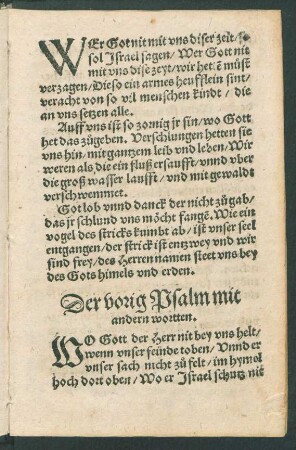 WEr Got nit mit vns diser zeit/ so
sol Israel sagen/ Wer Gott nit
mit vns dise zeyt/ wir hetē müst
verzagen/ Die so ein armes heufflein sint/
veracht von so vil menschen kindt/ die
an vns setzen alle.
Auff vns ist so zornig jr sin/ wo Gott
het das zůgeben. Verschlungen hetten sie
vns hin/ mit gantzem leib vnd leben/ Wir
weren als die ein fluß ersaufft/ vnnd vber
die groß wasser laufft/ vnd mit gewaldt
verschwemmet.
Got lob vnnd danck der nicht zůgab/
das jr schlund vns möcht fangē. Wie ein
vogel des stricks kumbt ab/ ist vnser seel
entgangen/ der strick ist entzwey vnd wir
sind frey/ des Herren namen steet vns bey
des Gots himels vnd erden.
Der vorig Psalm mit
andern wortten.
WO Gott der Herr nit bey vns helt/
wenn vnser feinde toben/ Vnnd er
vnser sach nicht zů felt/ im hymel
hoch dort oben/ Wo er Israel schutz nit